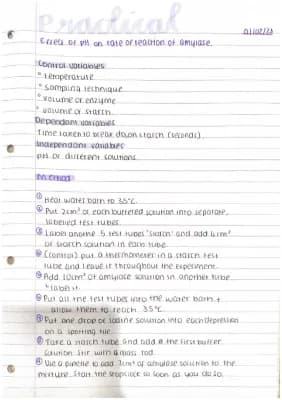 Practical
01/02/23
Effect of pH on rate of reaction of amylase.
Control variables
° temperature
° sampling technique
° volume of enzyme
° volume of starch.
Dependant variables
Time taken to break down starch (seconds).
Independant variables
pH of different solutions.
Method
① Heat water bath to 35°C.
② Put 2cm³ of each buffered solution into separate,
labelled test tubes.
③ Label another 5 test tubes 'starch' and add 4cm³
of starch solution in each tube.
④ (control) put a thermometer in a starch test
tube and leave it throughout the experiment.
⑤ Add 10cm³ of amylase solution in another tube
label it.
⑥ Put all the test tubes into the water bath +
allow them to reach 35°C.
⑦ Put one drop of iodine solution into each depression
on a spotting tile.
⑧ Take a starch tube and add the first buffer
solution. Stir with a glass rod.
⑨ Use a pipette to add 2cm³ of amylase solution to the
mixture. Start the stopclock as soon as you do so.